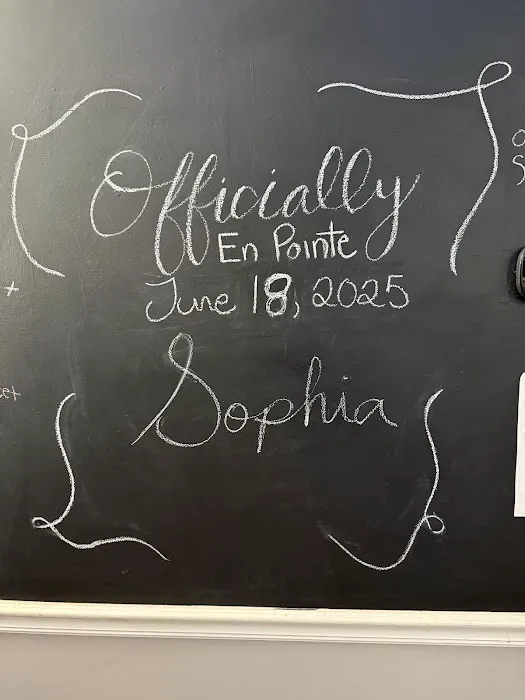 Officially
En Pointe
June 18, 2025
Sophia